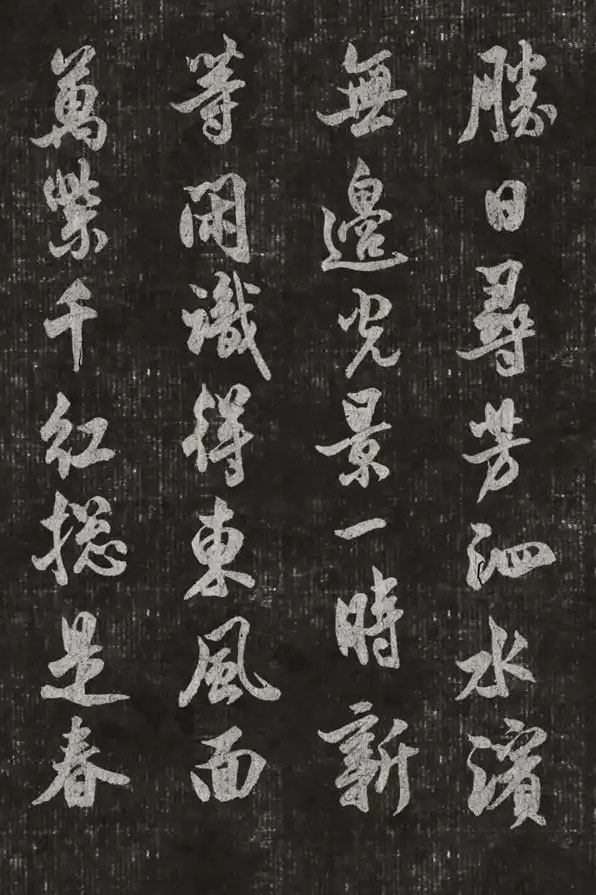 勝日尋芳泗水濱
無邊光景一時新
等閑識得東風面
萬紫千紅揔是春